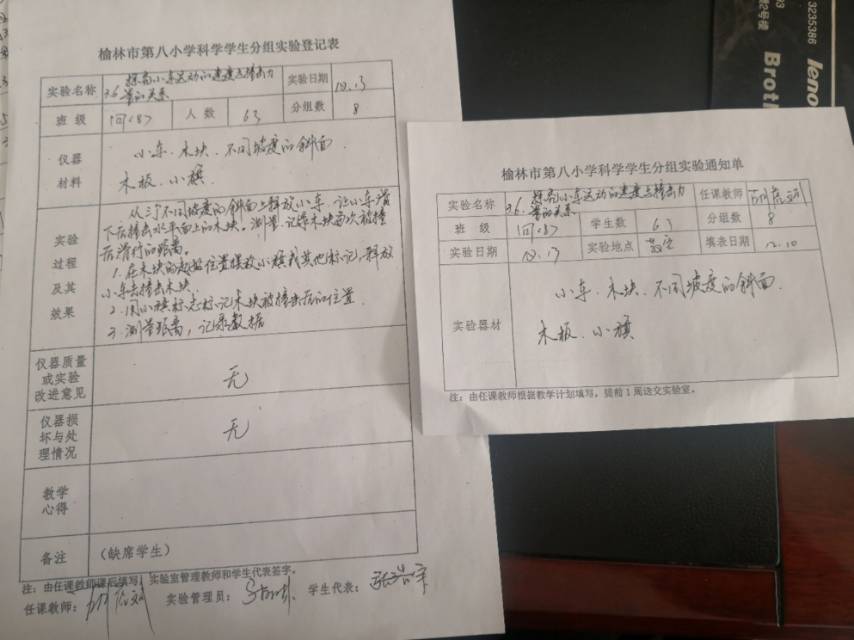 榆林市第八小学科学学生分组实验登记表
实验名称 3.6 探究小车运动的速度与撞击力量的关系 实验日期 12.13
班级 四<8> 人数 63 分组数 8
仪器材料
小车、木块、不同坡度的斜面
木板、小旗
实验过程及其效果
从三个不同坡度的斜面上释放小车、让小车滑
下后撞击水平面上的木块。测量、记录木块每次被撞
后滑行的距离。
1.在木块的起始位置摆放小旗或其他标记,释放
小车去撞击木块。
2.用小旗标志标记木块被撞击后的位置.
3.测量距离,记录数据
仪器质量或实验改进意见 无
仪器损坏与处理情况 无
教学心得
备注 (缺席学生)
注:由任课教师课后填写,实验室管理教师和学生代表签字。
任课教师: 实验管理员: 学生代表:
榆林市第八小学科学学生分组实验通知单
实验名称 3.6 探究小车运动的速度与撞击力量的关系 任课教师
班级 四<8> 学生数 63 分组数 8
实验日期 12.13 实验地点 教室 填表日期 12.10
实验器材
小车、木块、不同坡度的斜面
木板、小旗
注:由任课教师根据教学计划填写,提前1周送交实验室。
3235386
2号楼
leno
Broth